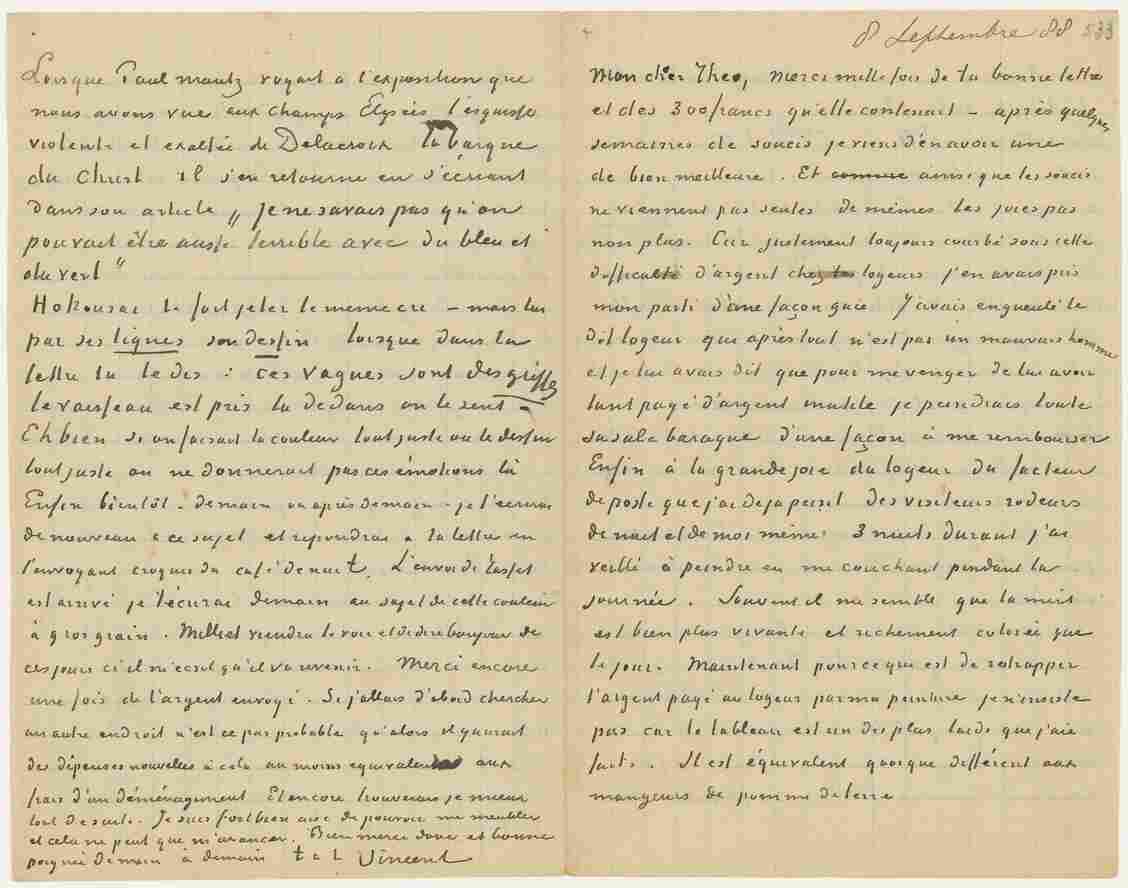 Lorsque Paul Mantz voyait à l'exposition que
nous avons vue aux Champs Elysées l'esquisse
violente et exaltée de Delacroix la barque
du Christ il s'en retourne en s'écriant
dans son article „ Je ne savais pas qu'on
pouvait être aussi terrible avec du bleu et
du vert "
Hokousai te fait jeter le meme cri – mais lui
par ses lignes son dessin lorsque dans ta
lettre tu te dis : ces vagues sont des griffes
le vaisseau est pris là dedans on le sent –
Eh bien si on faisait la couleur tout juste ou le dessin
tout juste on ne donnerait pas ces émotions là
Enfin bientôt – demain ou après demain – je t'écrirai
de nouveau à ce sujet et repondrai à ta lettre en
t'envoyant croquis du café de nuit. L'envoi de Tasset
est arrivé je t'écrirai demain au sujet de cette couleur
à gros grain. Milliet viendra te voir et te dire bonjour de
ces jours ci il m'écrit qu'il va revenir. Merci encore
une fois de l'argent envoyé. Si j'allais d'abord chercher
un autre endroit n'est ce pas probable qu'alors il y aurait
des dépenses nouvelles à cela au moins equivalentes aux
frais d'un déménagement Et encore trouverais je mieux
tout de suite. Je suis fort bien aise de pouvoir me meubler
et cela ne peut que m'avancer. Bien merci donc et bonne
poignée de main à demain t à t Vincent
8 Septembre 88 533
Mon cher Theo, merci mille fois de ta bonne lettre
et des 300 francs qu'elle contenait – après quelques
semaines de soucis je viens d'en avoir une
de bien meilleure. Et comme ainsi que les soucis
ne viennent pas seules de mêmes les joies pas
non plus. Car justement toujours courbé sous cette
difficulté d'argent chez les logeurs j'en avais pris
mon parti d'une façon gaie J'avais engueulé le
dit logeur qui après tout n'est pas un mauvais homme
et je lui avais dit que pour me venger de lui avoir
tant payé d'argent inutile je peindrais toute
sa sale baraque d'une façon à me rembourser
Enfin à la grande joie du logeur du facteur
de poste que j'ai deja peint des visiteurs rodeurs
de nuit et de moi même 3 nuits durant j'ai
veillé à peindre en me couchant pendant la
journée. Souvent il me semble que la nuit
est bien plus vivante et richement colorée que
le jour. Maintenant pour ce qui est de ratrapper
l'argent payé au logeur par ma peinture je n'insiste
pas car le tableau est un des plus laids que j'aie
faits. Il est équivalent quoique différent aux
mangeurs de pomme de terre